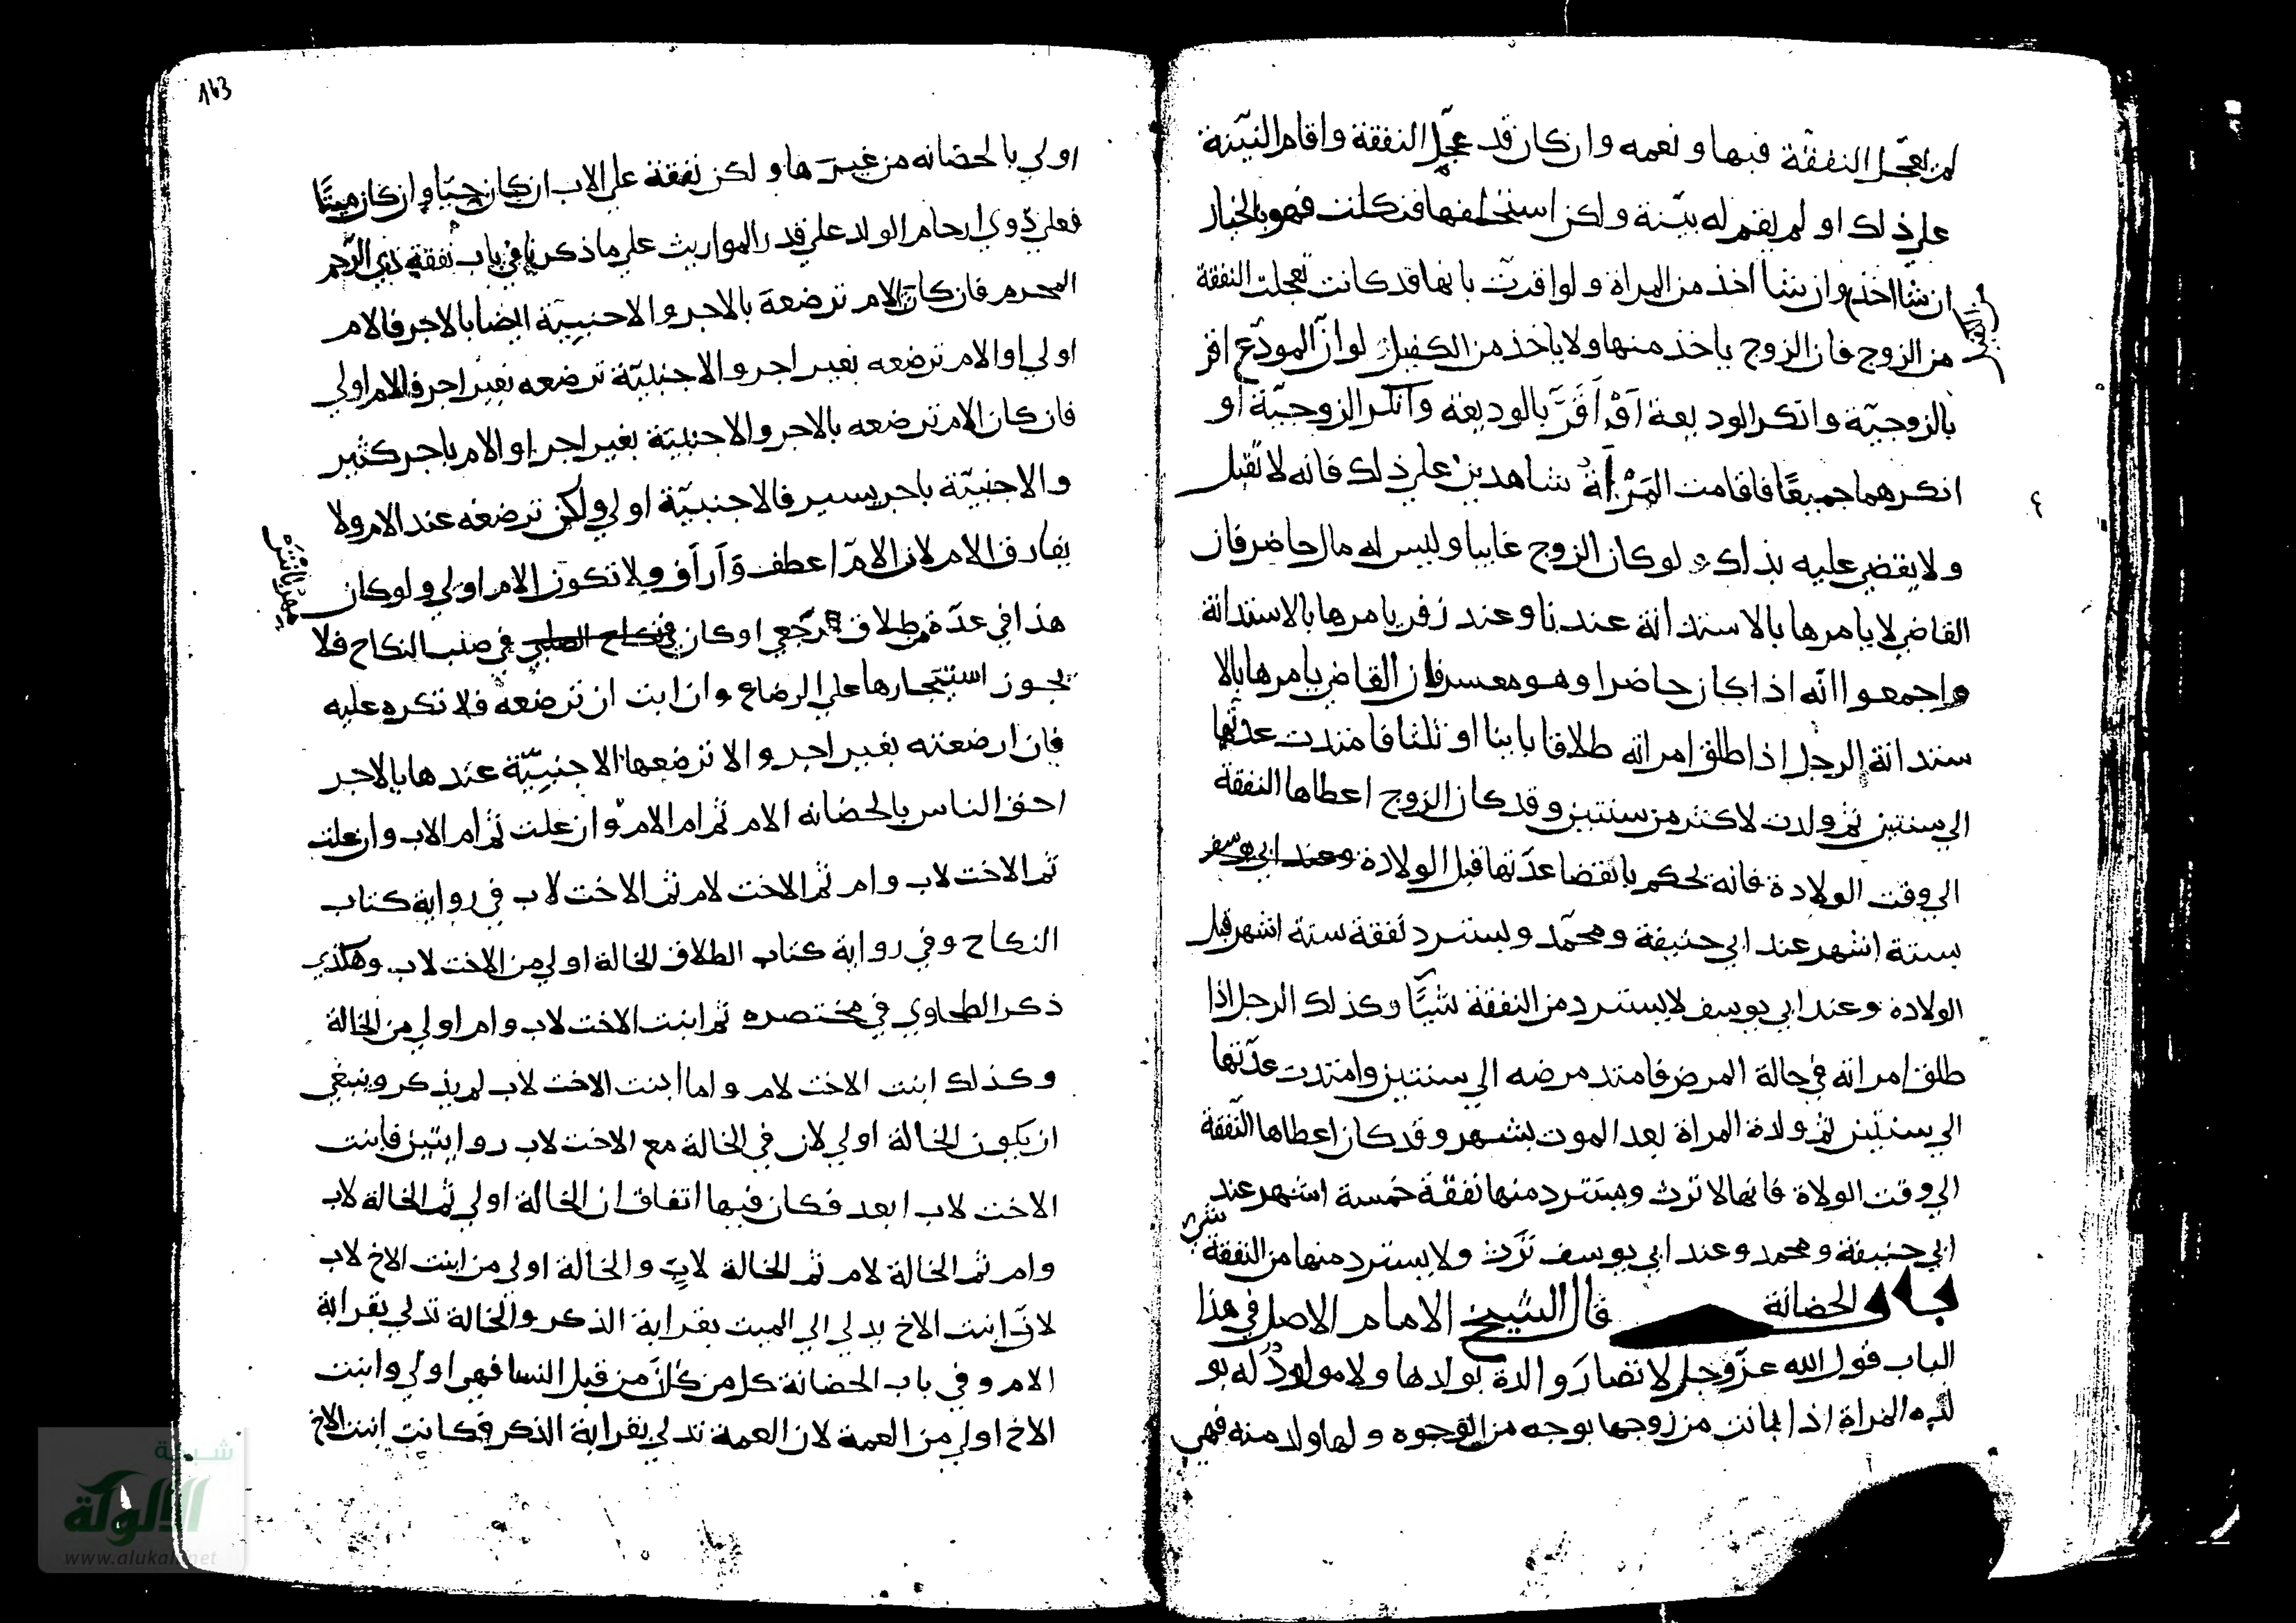 لم يعجل النفقة فيها ونعمه وان كان قد عجّل النفقة واقام البيّنة
على ذلك او لم يقم له بيّنة ولكن استحلفها فنكلت فهو بالخيار
ان شا اخذ وان شا اخذ من المراة ولو اقرت بانها قد كانت تعجلت النفقة
من الكفيل
من الزوج فان الزوج ياخذ منها ولا ياخذ من الكفيل لو ان المودَع اقر
بالزوجيّة وانكر الوديعة اَوْ اَقَرَّ بالوديعة وانكر الزوجيّة او
انكرهما جميعًا فاقامت المَرْأة شاهدين على ذلك فانه لا تقبل
ولا يقضي عليه بذلك لو كان الزوج غايبا وليس له مال حاضر فان
القاضي لا يامرها بالاستدانة عندنا وعند زفر يامرها بالاستدانة
واجمعوا انّه اذا كان حاضرا وهو معسر فان القاضي يامرها بالا
ستدانة الرجل اذا طلق امراته طلاقا باينا او ثلثا فامتدت عدتها
الي سنتين ثم ولدت لاكثر من سنتين وقد كان الزوج اعطاها النفقة
الي وقت الولادة فانه يحكم بانقضا عدّتها قبل الولادة وعند ابي يوسف
بستة اشهر عند ابي حنيفة ومحمّد ويسترد نفقة ستة اشهر قبل
الولادة وعند ابي يوسف لا يسترد من النفقة شيًّا وكذلك الرجل اذا
طلق امراته في حالة المرض فامتد مرضه الي سنتين وامتدت عدّتها
الي سنتين ثم ولادة المراة بعد الموت بشهر وقد كان اعطاها النّفقة
الي وقت الولاة فانها لا ترث ويسترد منها نفقة خمسة اشهر عند
ابي حنيفة ومحمد وعند ابي يوسف ترث ولا يسترد منها من النفقة
شي
باب الحضانة قال الشيخ الامام الاصل في هذا
الباب قول الله عزّوجل لا تضار والدة بولدها ولا مولودٌ له بو
لده المراة اذا بانت من زوجها بوجه من الوجوه ولها ولد منه فهي
163
اولي بالحضانه من غيرها ولكن نفقة علي الاب ان كان حيّا وان كان ميتًا
فعلي ذوي ارحام الولد علي قدر المواريث علي ما ذكرنا في باب نفقة ذي الرّحم
المحرم فان كان الام ترضعة بالاجر والاجنبيّة ايضا بالاجر فالام
اولي او الام ترضعه بغير اجر والاجنبيّة ترضعه بغير اجر فالام اولي
فان كان الام ترضعه بالاجر والاجنبيّة بغير اجر او الام باجر كثير
والاجنبيّة باجر يسير فالاجنبيّة اولي ولكن ترضعه عند الام ولا
يفارق الام لان الامّ اعطف وَاَراَف ولا تكون الام اولي ولو كان
هذا في عدّة من طلاق رَجعي او كان في نكاح في صلب النكاح فلا
يجوز استيجارها علي الرضاع وان ابت ان ترضعه فلا تكره عليه
فان ارضعته بغير اجر والا ترضعها الاجنبيّة عندها بالاجر
احق الناس بالحضانه الام ثم ام الام وان علت ثم ام الاب وان علت
ثم الاخت لاب وام ثم الاخت لام ثم الاخت لاب في رواية كتاب
النكاح وفي رواية كتاب الطلاق الخالة اولي من الاخت لاب وهكذي
ذكر الطحاوي في مختصره ثم ابنت الاخت لاب وام اولي من الخالة
وكذلك ابنت الاخت لام واما ابنت الاخت لاب لم يذكر وينبغي
ان يكون الخالة اولي لان في الخالة مع الاخت لاب روايتين فابنت
الاخت لاب ابعد فكان فيها اتفاق ان الخالة اولي ثم الخالة لاب
وام ثم الخالة لام ثم الخالة لابٍ والخالة اولي من ابنت الاخ لاب
لانّ ابنت الاخ يدلي الي الميت بقرابة الذكر والخالة تدلي بقرابة
الام وفي باب الحضانة كل من كان من قبل النسا فهي اولي وابنت
الاخ اولي من العمة لان العمة تدلي بقرابة الذكر فكانت ابنت الاخ
شبكة
الألوكة
www.alukah.net